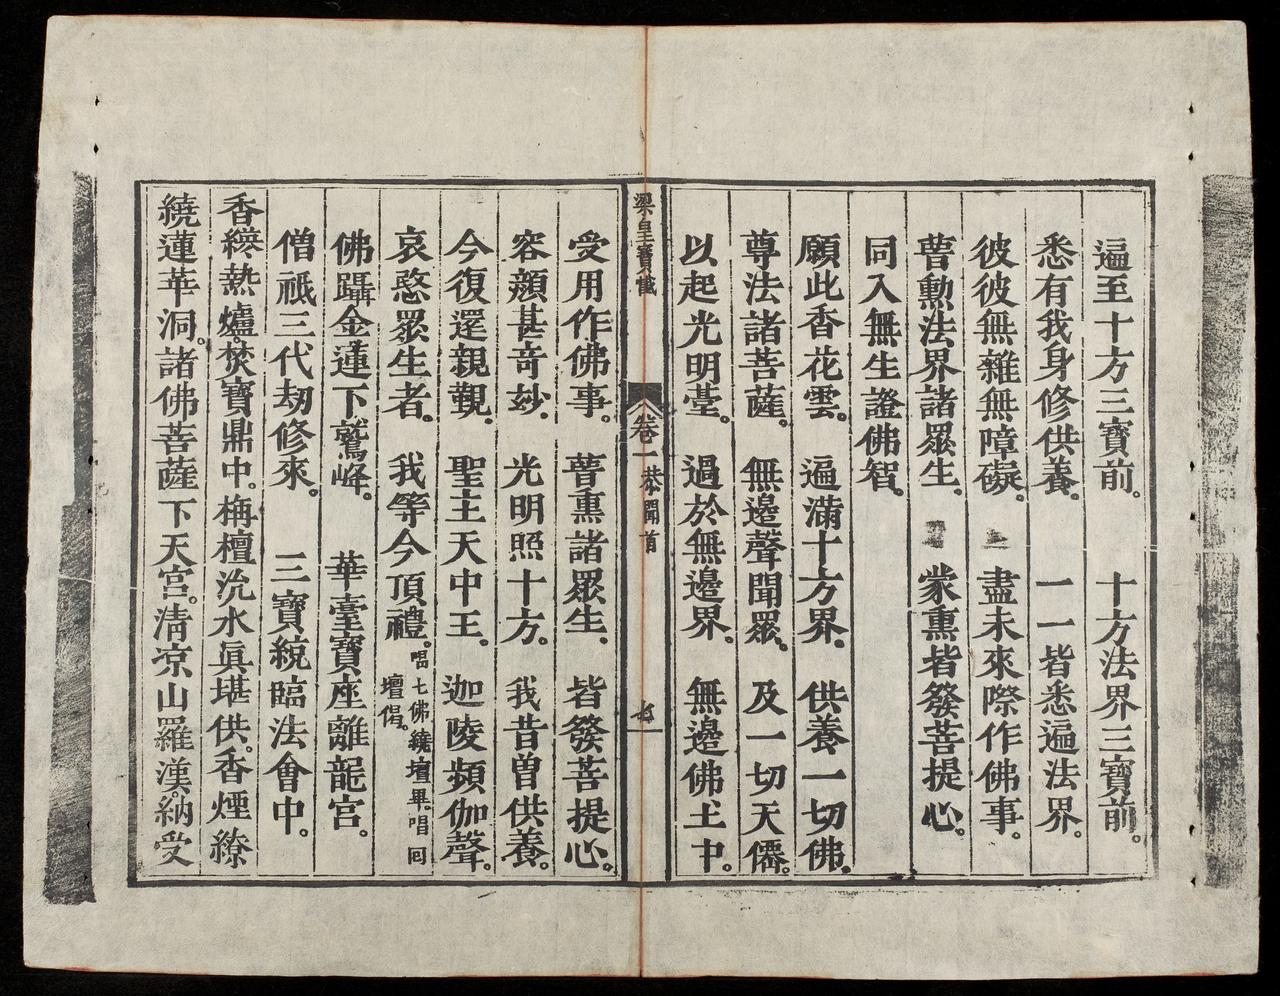 遍至十方三寶前。　十方法界三寶前。
悉有我身修供養。　一一皆悉遍法界。
彼彼無雜無障礙。　盡未來際作佛事。
普熏法界諸眾生。　蒙熏皆發菩提心。
同入無生證佛智。
願此香花雲。　遍滿十方界。　供養一切佛。
尊法諸菩薩。　無邊聲聞眾。　及一切天僊。
以起光明臺。　過於無邊界。　無邊佛土中。
梁皇寶懺　卷一　恭聞首　七
受用作佛事。　普熏諸眾生。　皆發菩提心。
容顏甚奇妙。　光明照十方。　我昔曾供養。
今復還親覲。　聖主天中王。　迦陵頻伽聲。
哀愍眾生者。　我等今頂禮。唱七佛繞壇畢。唱回壇偈。
佛躡金蓮下鷲峰。　華臺寶座離龍宮。
僧祇三代劫修來。　三寶統臨法會中。
香纔熱爐。焚寶鼎中。栴檀沉水眞堪供。香煙繚
繞蓮華洞。諸佛菩薩下天宮。清凉山羅漢。納受